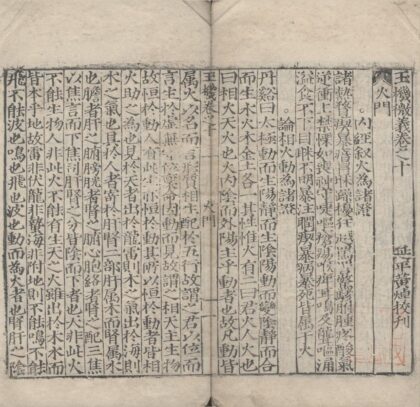 玉機微義卷之十 延平黃焯校刊
火門
內經敘火為諸證
諸熱瞀瘈暴瘖冒昧躁擾狂越罵詈驚駭胕腫疼酸氣
逆衝上禁慄如喪神守嚏嘔瘡瘍喉痺耳鳴及聾嘔涌
溢食不下目昧不明暴注瞤瘈暴病暴死皆屬于火
論相火動為諸證
丹谿曰太極動而生陽靜而生陰陽動而變陰靜而合
而生水火木金土各一其性惟火有二曰君火人火也
曰相火天火也火內陰而外陽主乎動者也故凡動皆
玉機卷之十 火門
屬火以名而言形質相生配於五行故謂之君以位而
言生於虛無守位稟命因動而見故謂之相天主生物
故恒於動人有此生亦恒於動其所以恒於動者皆相
火之為也見於天者出於龍雷則木之氣出於海則
水之氣也具於人者寄於肝腎二部肝屬木而腎屬水
也膽者肝之腑膀胱者腎之腑心胞絡者腎之配三焦
以焦言而下焦司肝腎之分皆陰而下者也天非此火
不能生物人非此火不能有生天之火雖出於木而
皆本乎地故雷非伏龍非蟄海非附地則不能鳴不能
飛不能波也鳴也飛也波也動而為火者也肝腎之陰